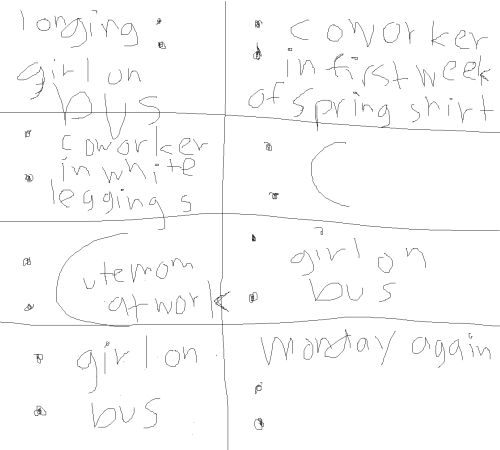 longing
girl on
bus
coworker
in first week
of spring shirt
coworker
in white
leggings
C
Cutemom
at work
girl on
bus
girl on
bus
monday again